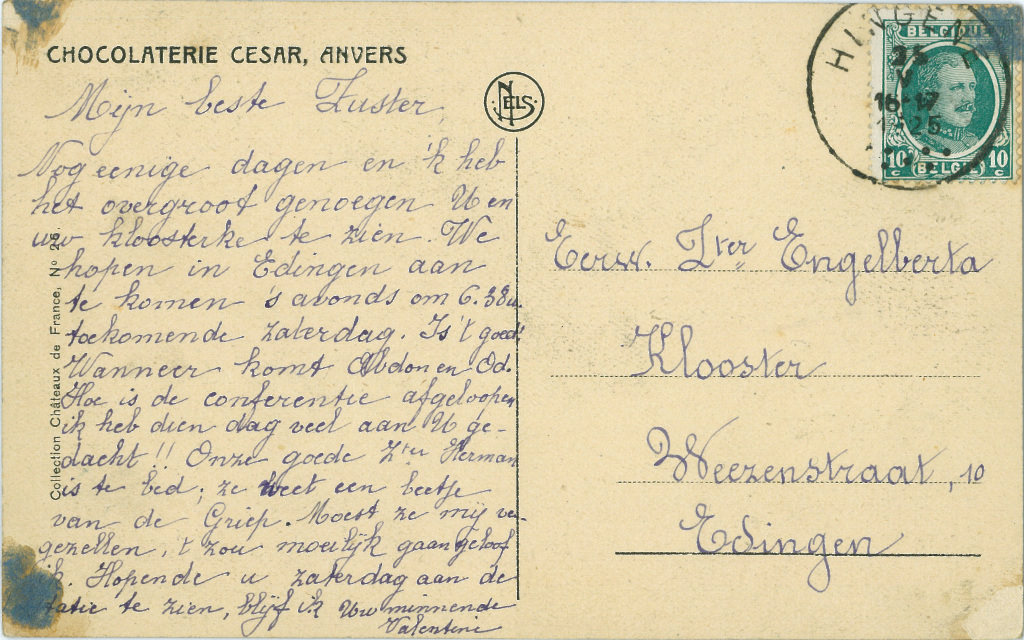 CHOCOLATERIE CESAR, ANVERS
NELS
Mijn beste Zuster,
Nog eenige dagen en 'k heb
het overgroot genoegen U en
uw kloosterke te zien. We
hopen in Edingen aan
te komen 's avonds om 6.38u.
toekomende zaterdag. Is 't goed?
Wanneer komt Abdon en Od.
Hoe is de conferentie afgeloopen
ik heb dien dag veel aan U ge-
dacht!! Onze goede Zter Herman
is te bed; ze weet een beetje
van de Griep. Moest ze mij ver-
gezellen, 't zou moeilijk gaan geloof
ik. Hopende u zaterdag aan de
statie te zien, blijf ik Uw minnende
Valentine
Collection Châteaux de France, No 25.
HINGENE
25
V
16-17
1925
BELGIQUE
10 c
BELGIË
10 c
Eerw. Zter Engelberta
Klooster
Weezenstraat, 10
Edingen